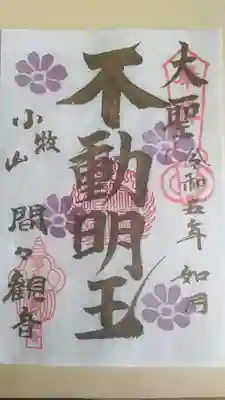 大聖
令和五年
如月
不動明王
小牧山
間々観音